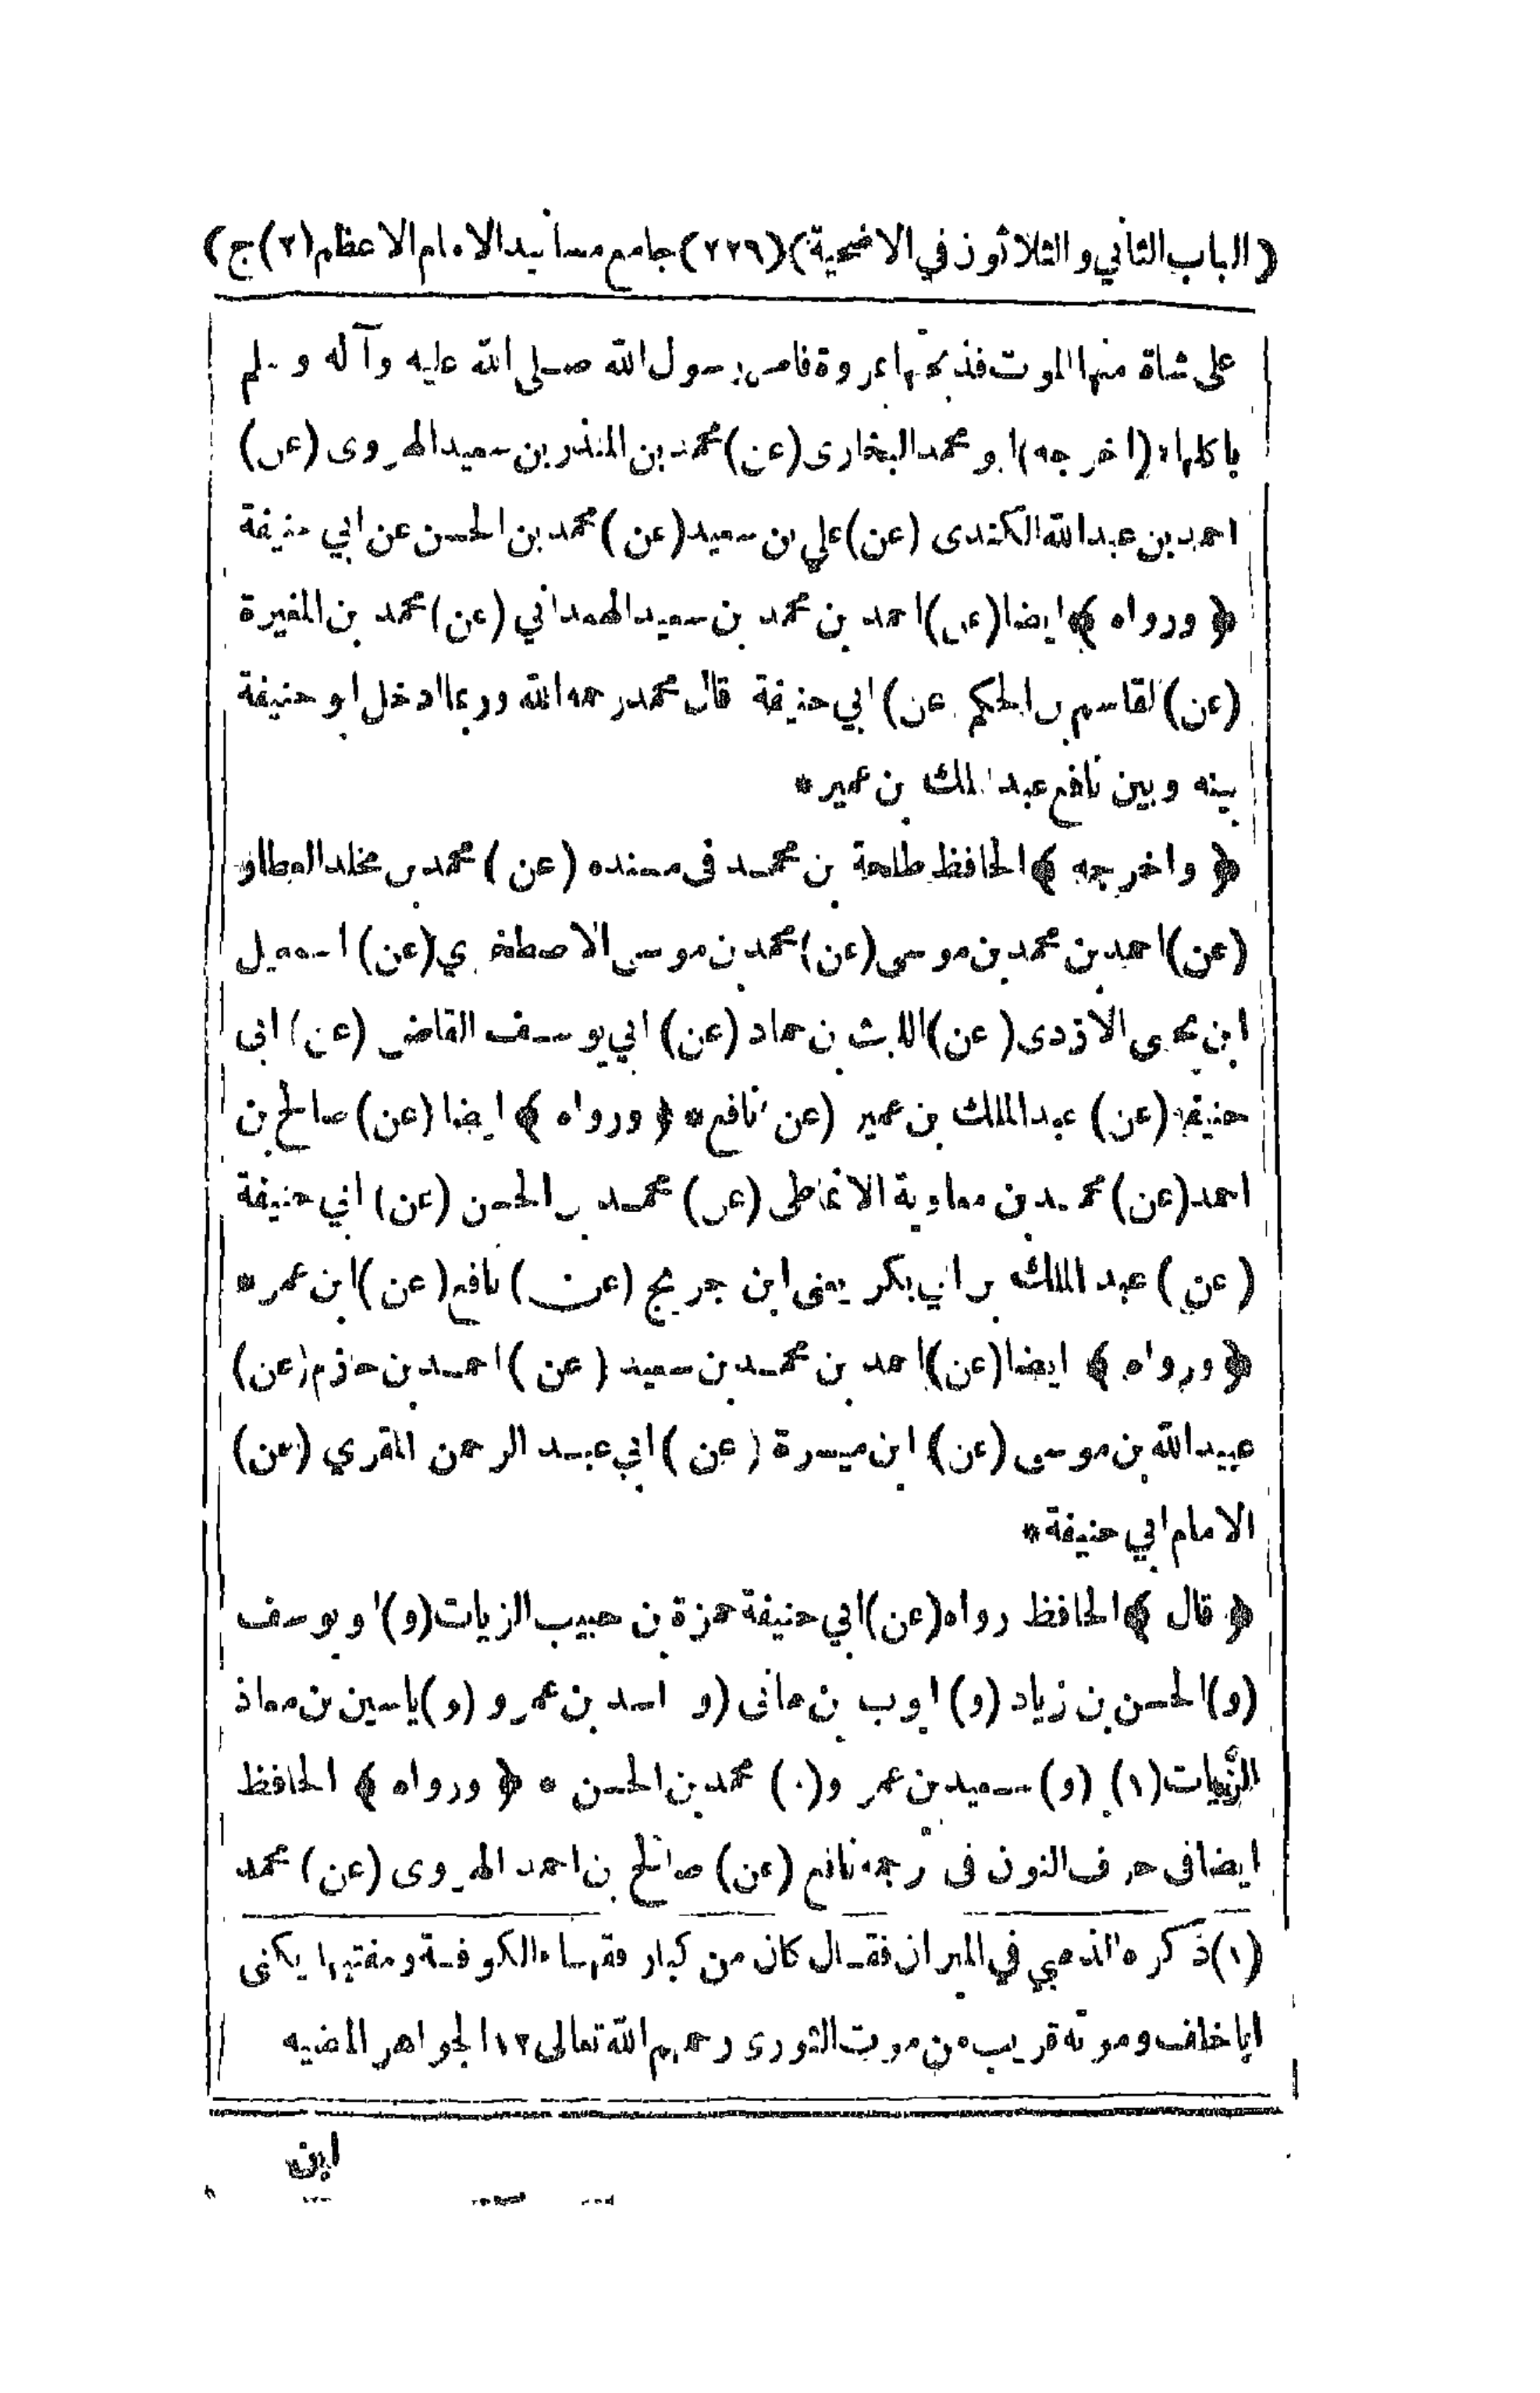 (الباب الثاني والثلاثون في الاضحية) (٢٢٩) جامع مسانيد الامام الاعظم (٢) ج)
على شاة منها الموت فذبحتها بمروة فامر رسول الله صلى الله عليه وآله وسلم
باكلها * (اخرجه) ابو محمد البخارى (عن) محمد بن المنذر بن سعيد الهروى (عن)
احمد بن عبد الله الكندى (عن) علي بن سعيد (عن) محمد بن الحسن عن ابي حنيفة
﴿ ورواه ﴾ ايضا (عن) احمد بن محمد بن سعيد الهمداني (عن) محمد بن المغيرة
(عن) القاسم بن الحكم (عن) ابي حنيفة قال محمد رحمه الله وربما ادخل ابو حنيفة
بينه وبين نافع عبد الملك بن عمير *
﴿ واخرجه ﴾ الحافظ طلحة بن محمد فى مسنده (عن) محمد بن مخلد العطار
(عن) احمد بن محمد بن موسى (عن) محمد بن موسى الاصطخري (عن) اسمعيل
ابن يحيى الازدى (عن) الليث بن حماد (عن) ابي يوسف القاضى (عن) ابى
حنيفة (عن) عبد الملك بن عمير (عن) نافع * ﴿ ورواه ﴾ ايضا (عن) صالح بن
احمد (عن) محمد بن معاوية الانماطى (عن) محمد بن الحسن (عن) ابي حنيفة
(عن) عبد الملك بن ابي بكر يعنى ابن جريج (عن) نافع (عن) ابن عمر *
﴿ ورواه ﴾ ايضا (عن) احمد بن محمد بن سعيد (عن) احمد بن حازم (عن)
عبيد الله بن موسى (عن) ابن ميسرة (عن) ابي عبد الرحمن المقري (عن)
الامام ابي حنيفة *
﴿ قال ﴾ الحافظ رواه (عن) ابي حنيفة حمزة بن حبيب الزيات (و) ابو يوسف
(و) الحسن بن زياد (و) ايوب بن هانى (و) اسد بن عمرو (و) ياسين بن معاذ
الزيات (١) (و) سعيد بن عمرو (و) محمد بن الحسن * ﴿ ورواه ﴾ الحافظ
ايضا فى حرف النون فى ترجمه نافع (عن) صالح بن احمد الهروى (عن) محمد
(١) ذكره الذهبي في الميزان فقال كان من كبار فقهاء الكوفة ومفتيها يكنى
ابا خلف وموته قريب من موت الثورى رحمهم الله تعالى ١٢ الجواهر المضيه
ابن